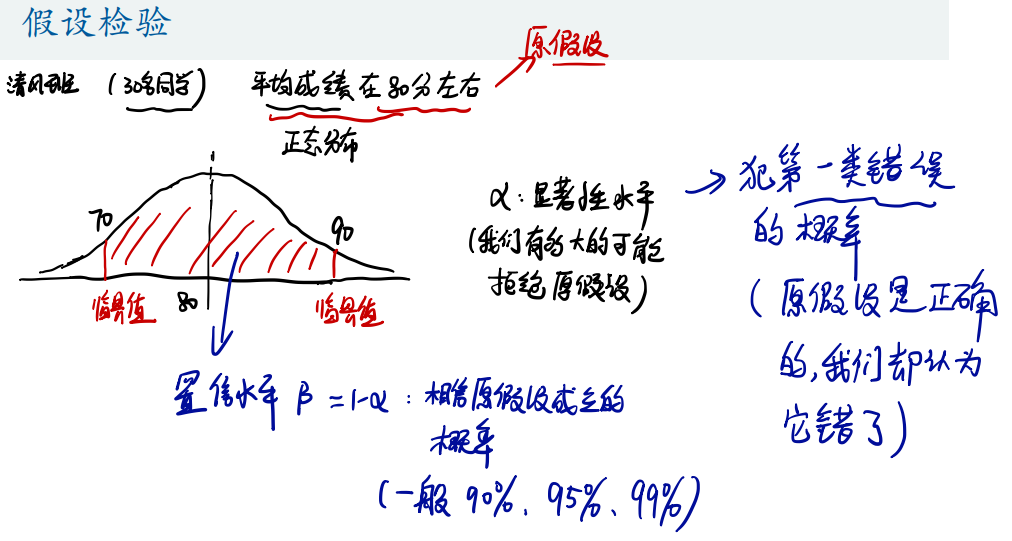 假设检验
原假设
清风班 (30名同学) 平均成绩在80分左右
正态分布
70
90
临界值
80
临界值
α:显著性水平
(我们有多大的可能
拒绝原假设)
→犯第一类错误
的概率
(原假设是正确
的,我们却认为
它错了)
置信水平 β=1-α:相信原假设成立的
概率
(一般 90%、95%、99%)